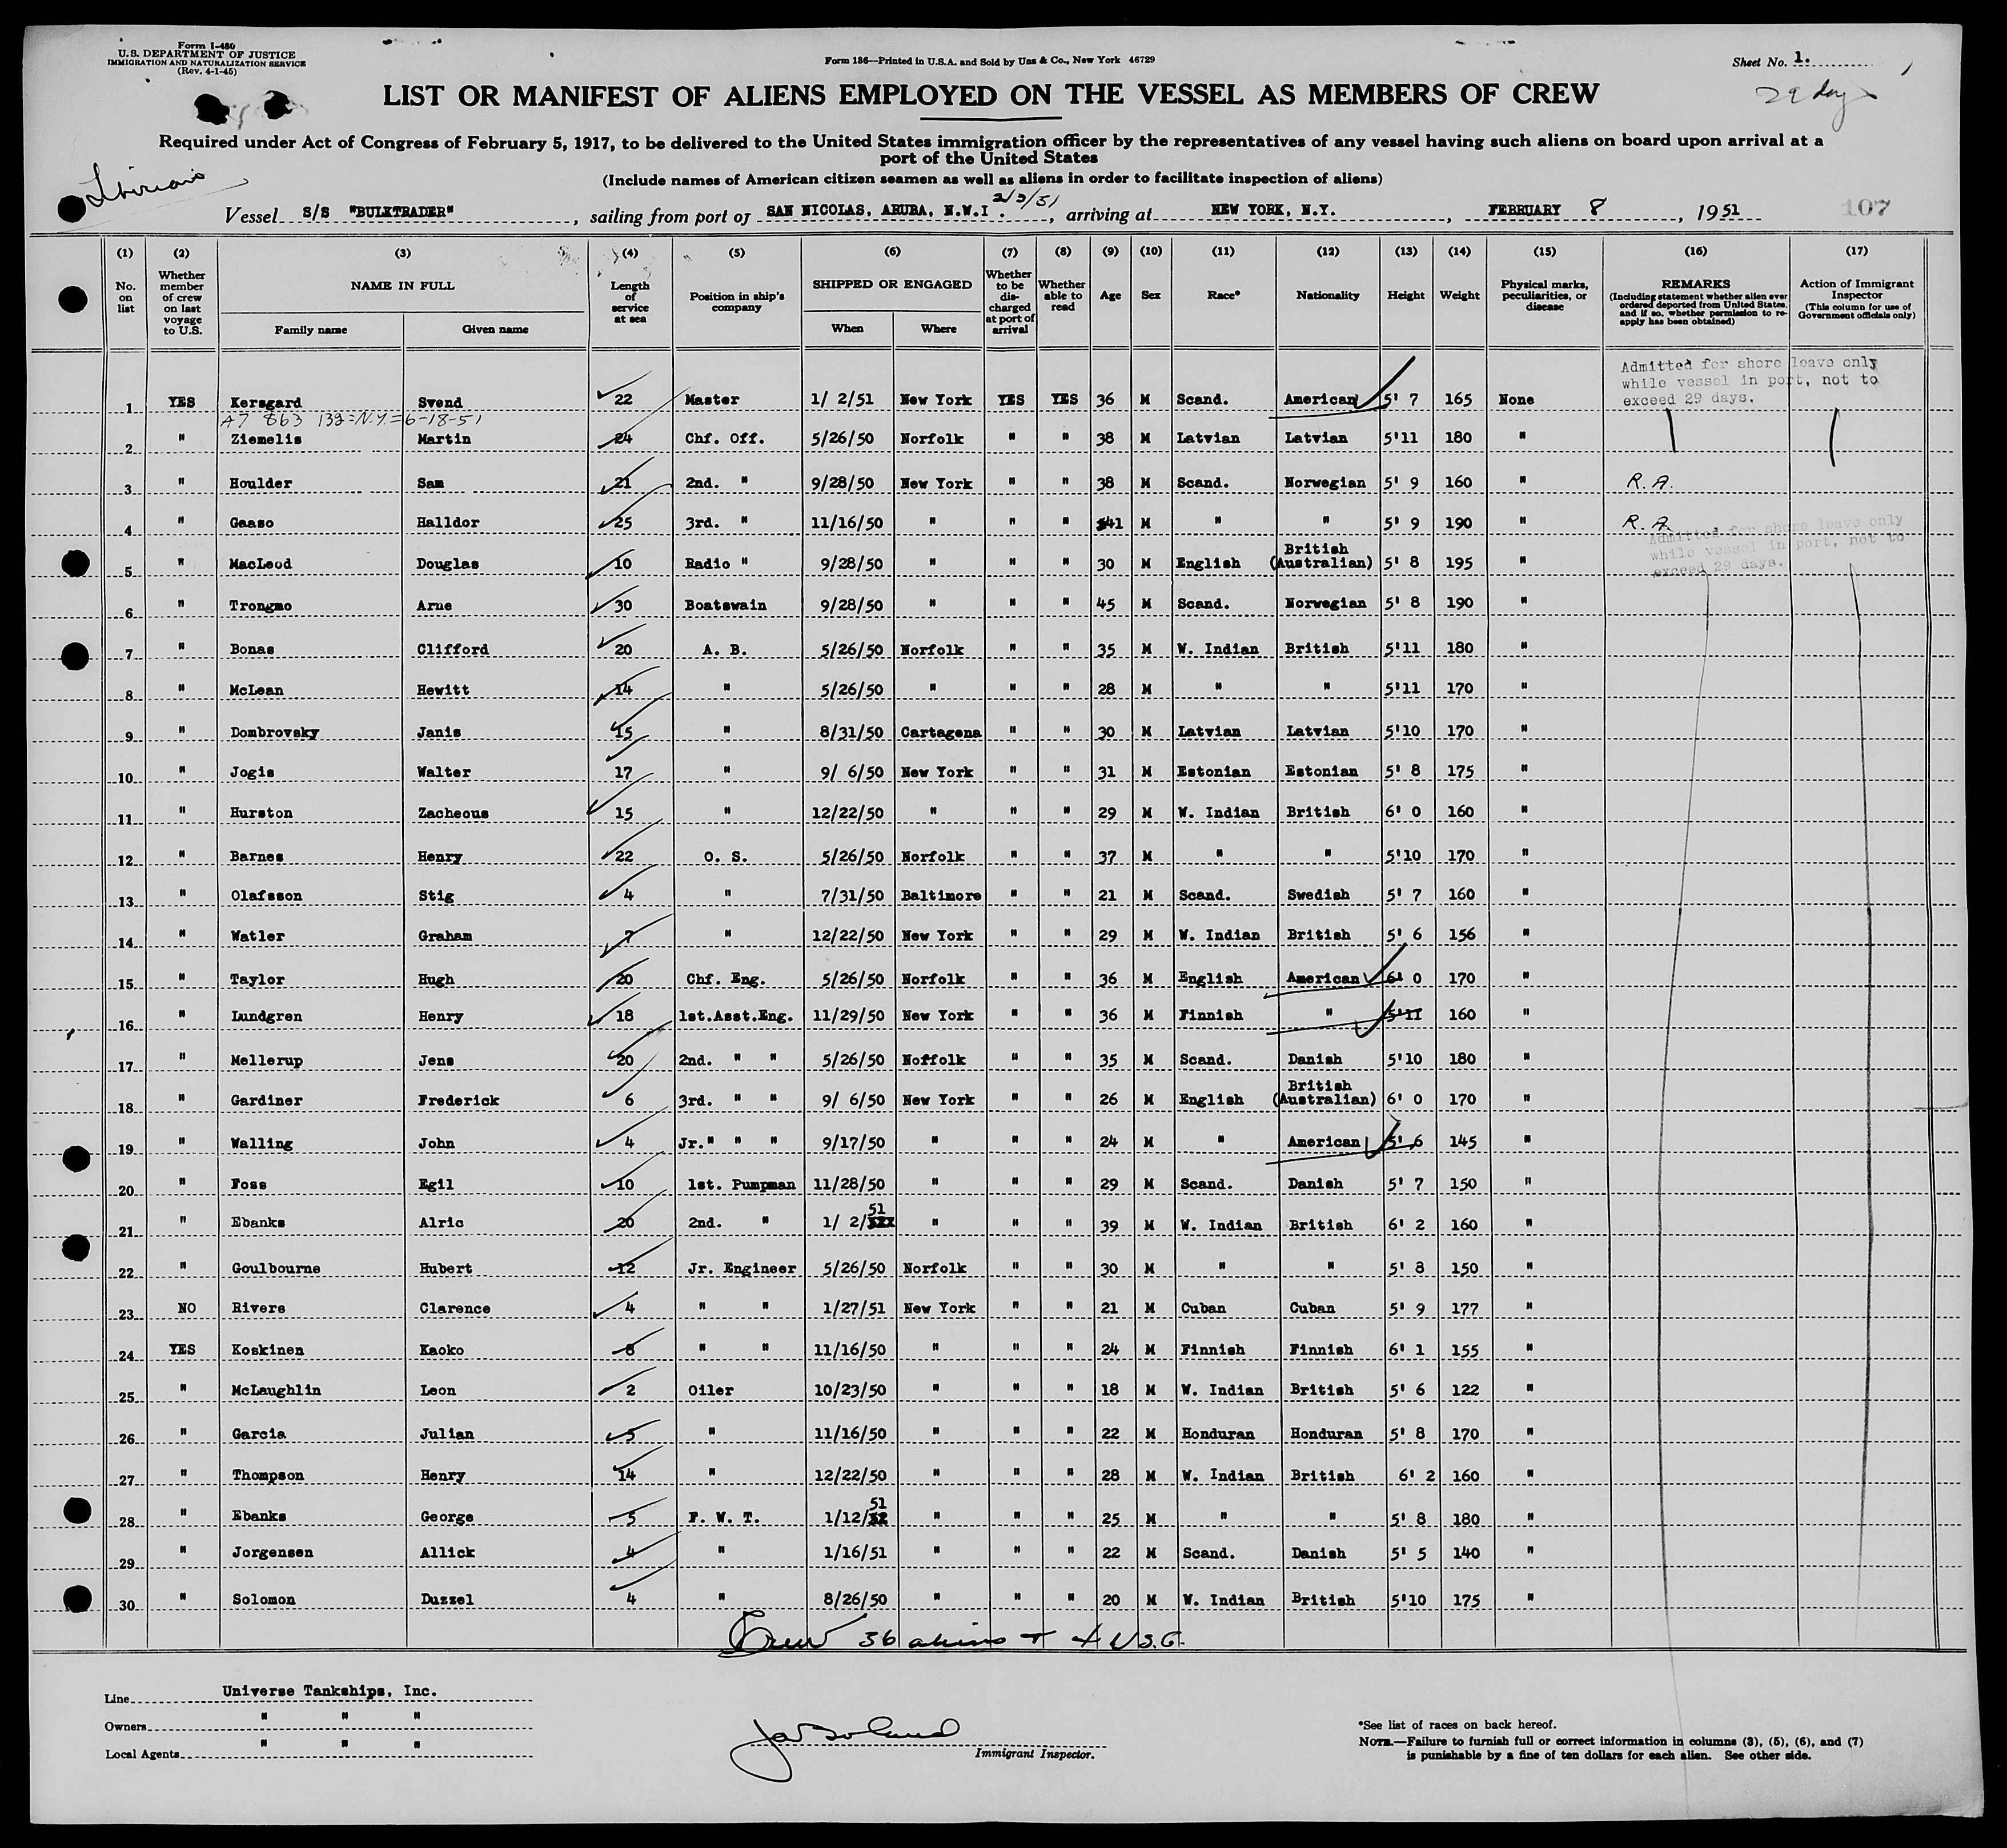 Form I-480
U.S. DEPARTMENT OF JUSTICE
IMMIGRATION AND NATURALIZATION SERVICE
(Rev. 4-1-45)
Form 186—Printed in U.S.A. and Sold by Unz & Co., New York 46729
Sheet No. 1.
29 days
LIST OR MANIFEST OF ALIENS EMPLOYED ON THE VESSEL AS MEMBERS OF CREW
Required under Act of Congress of February 5, 1917, to be delivered to the United States immigration officer by the representatives of any vessel having such aliens on board upon arrival at a
port of the United States
(Include names of American citizen seamen as well as aliens in order to facilitate inspection of aliens)
Liberian
Vessel S/S "BULKTRADER", sailing from port of SAN NICOLAS, ARUBA, N.W.I. 2/3/51, arriving at NEW YORK, N.Y., FEBRUARY 8, 1951 107
(1) (2) (3) (4) (5) (6) (7) (8) (9) (10) (11) (12) (13) (14) (15) (16) (17)
No. on list
Whether member of crew on last voyage to U.S.
NAME IN FULL
Family name Given name
Length of service at sea
Position in ship's company
SHIPPED OR ENGAGED
When Where
Whether to be discharged at port of arrival
Whether able to read
Age Sex Race* Nationality Height Weight
Physical marks, peculiarities, or disease
REMARKS
(Including statement whether alien ever ordered deported from United States, and if so, whether permission to re-apply has been obtained)
Action of Immigrant Inspector
(This column for use of Government officials only)
Admitted for shore leave only
while vessel in port, not to
exceed 29 days.
1 YES Kersgard Svend 22 Master 1/ 2/51 New York YES YES 36 M Scand. American 5' 7 165 None
A7 863 132=N.Y.=6-18-51
2 " Ziemelis Martin 24 Chf. Off. 5/26/50 Norfolk " " 38 M Latvian Latvian 5'11 180 "
3 " Houlder Sam 21 2nd. " 9/28/50 New York " " 38 M Scand. Norwegian 5' 9 160 " R.A.
4 " Gaaso Halldor 25 3rd. " 11/16/50 " " " 41 M " " 5' 9 190 " R.A.
Admitted for shore leave only
while vessel in port, not to
exceed 29 days.
5 " MacLeod Douglas 10 Radio " 9/28/50 " " " 30 M English British (Australian) 5' 8 195 "
6 " Trongmo Arne 30 Boatswain 9/28/50 " " " 45 M Scand. Norwegian 5' 8 190 "
7 " Bonas Clifford 20 A. B. 5/26/50 Norfolk " " 35 M W. Indian British 5'11 180 "
8 " McLean Hewitt 14 " 5/26/50 " " " 28 M " " 5'11 170 "
9 " Dombrovsky Janis 15 " 8/31/50 Cartagena " " 30 M Latvian Latvian 5'10 170 "
10 " Jogis Walter 17 " 9/ 6/50 New York " " 31 M Estonian Estonian 5' 8 175 "
11 " Hurston Zacheous 15 " 12/22/50 " " " 29 M W. Indian British 6' 0 160 "
12 " Barnes Henry 22 O. S. 5/26/50 Norfolk " " 37 M " " 5'10 170 "
13 " Olafsson Stig 4 " 7/31/50 Baltimore " " 21 M Scand. Swedish 5' 7 160 "
14 " Watler Graham 7 " 12/22/50 New York " " 29 M W. Indian British 5' 6 156 "
15 " Taylor Hugh 20 Chf. Eng. 5/26/50 Norfolk " " 36 M English American 6' 0 170 "
16 " Lundgren Henry 18 1st.Asst.Eng. 11/29/50 New York " " 36 M Finnish " 5'11 160 "
17 " Mellerup Jens 20 2nd. " " 5/26/50 Noffolk " " 35 M Scand. Danish 5'10 180 "
18 " Gardiner Frederick 6 3rd. " " 9/ 6/50 New York " " 26 M English British (Australian) 6' 0 170 "
19 " Walling John 4 Jr." " " 9/17/50 " " " 24 M " American 5' 6 145 "
20 " Foss Egil 10 1st. Pumpman 11/28/50 " " " 29 M Scand. Danish 5' 7 150 "
21 " Ebanks Alric 20 2nd. " 1/ 2/51 " " " 39 M W. Indian British 6' 2 160 "
22 " Goulbourne Hubert 12 Jr. Engineer 5/26/50 Norfolk " " 30 M " " 5' 8 150 "
23 NO Rivers Clarence 4 " " 1/27/51 New York " " 21 M Cuban Cuban 5' 9 177 "
24 YES Koskinen Kaoko 8 " " 11/16/50 " " " 24 M Finnish Finnish 6' 1 155 "
25 " McLaughlin Leon 2 Oiler 10/23/50 " " " 18 M W. Indian British 5' 6 122 "
26 " Garcia Julian 5 " 11/16/50 " " " 22 M Honduran Honduran 5' 8 170 "
27 " Thompson Henry 14 " 12/22/50 " " " 28 M W. Indian British 6' 2 160 "
28 " Ebanks George 5 F. W. T. 1/12/51 " " " 25 M " " 5' 8 180 "
29 " Jorgensen Allick 4 " 1/16/51 " " " 22 M Scand. Danish 5' 5 140 "
30 " Solomon Duzzel 4 " 8/26/50 " " " 20 M W. Indian British 5'10 175 "
Crew 36 aliens + 4 U.S.C.
Line Universe Tankships, Inc.
Owners " " "
Local Agents " " "
Immigrant Inspector.
*See list of races on back hereof.
NOTE.—Failure to furnish full or correct information in columns (3), (5), (6), and (7)
is punishable by a fine of ten dollars for each alien. See other side.